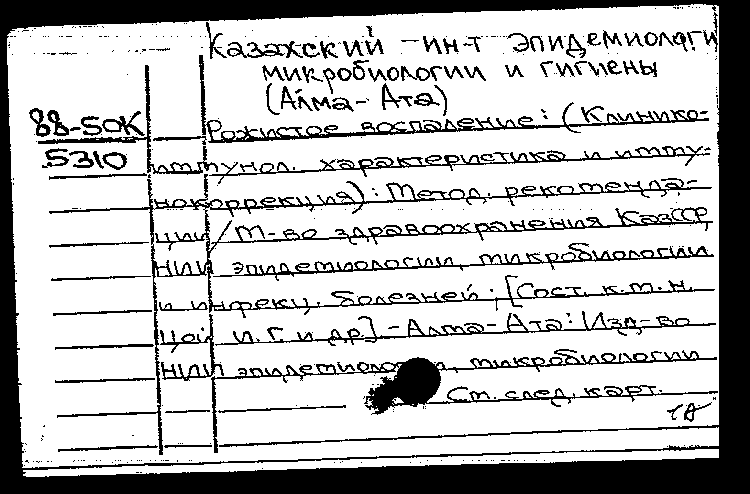 Казахский ин-т эпидемиологи
микробиологии и гигиены
(Алма-Ата)
88-50К
5310
Рожистое воспаление: (Клинико-
иммунол. характеристика и имму-
нокоррекция): Метод. рекоменда-
ции / М-во здравоохранения КазССР,
НИИ эпидемиологии, микробиологии
и инфекц. болезней; [Сост. к.м.н.
Цой И.Г. и др.] - Алма-Ата: Изд-во
НИИ эпидемиологии, микробиологии
См. след. карт.